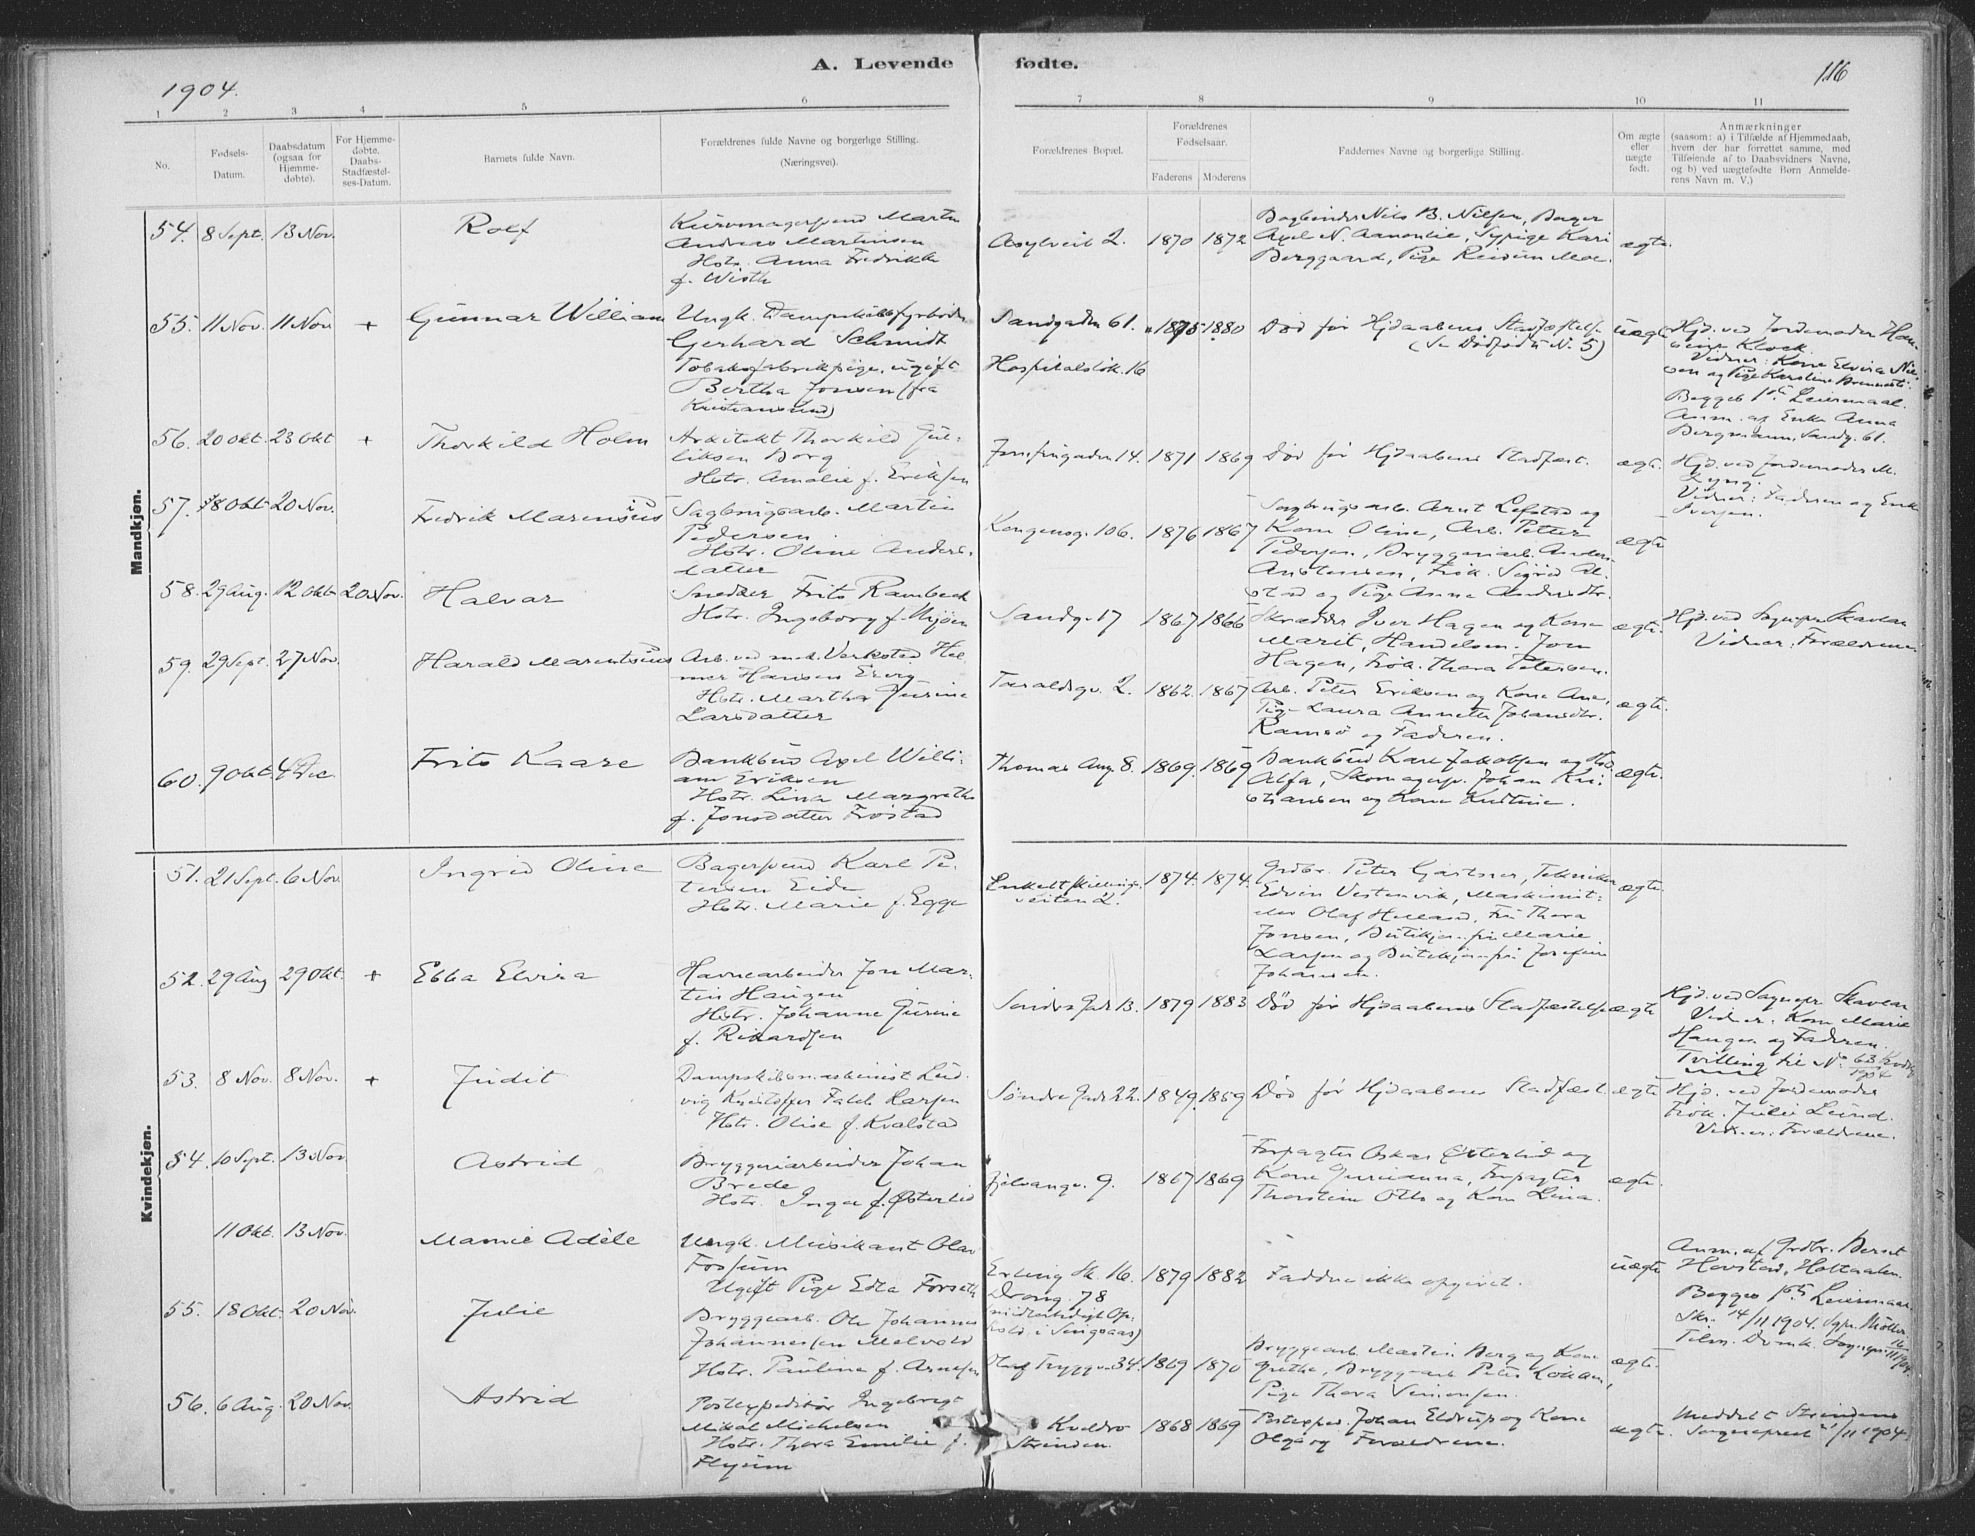 1904.
A. Levende fødte.
116
1 2 3 4 5 6 7 8 9 10 11
No.
Fødsels-
Datum.
Daabsdatum
(ogsaa for
Hjemme-
døbte).
For Hjemme-
døbte,
Daabs-
Stadfæstel-
ses-Datum.
Barnets fulde Navn.
Forældrenes fulde Navne og borgerlige Stilling.
(Næringsvei).
Forældrenes Bopæl.
Forældrenes
Fødselsaar.
Faderens Moderens
Faddernes Navne og borgerlige Stilling.
Om ægte
eller
uægte
født.
Anmærkninger
(saasom: a) i Tilfælde af Hjemmedaab,
hvem der har forrettet samme, med
Tilføiende af to Daabsvidners Navne,
og b) ved uægtefødte Børn Anmelde-
rens Navn m. V.)
Mandkjøn.
54. 8 Sept. 13 Nov. Rolf
Andreas Martinsen
Hstr. Anna Fredrikke
f. Wisth
Asylveit 2. 1870 1872
Bogbinder Nils B. Nilsen, Bager
Axel N. Aamonlie, Sypige Kari
Berggaard, Pige Reidun Moe.
ægte.
55. 11 Nov. 11 Nov + Gunnar William
Ungk. Dampskibsfyrbøder
Gerhard Schmidt
Tobaksfabrikpige, ugift
Bertha Jonsen (fra
Kristiansund)
Sandgaden 61.
Hospitalsløk. 16
1875 1880
Død før Hjdaabens Stadfæstelse
(Se Dødfødte N. 5)
uægte
Hjd. ved Jordemoder
Klock.
Vidner: Kone Elvira Niel-
sen og Pige Karstine
Begges 1ste Leiermaal.
Anm. af Enke Anna
Bergmann, Sandg. 61.
56. 20 Okt. 23 Okt + Thorkild Holm
Arkitekt Thorkild Gul-
liksen Borg
Hstr. Amalie f. Eriksen
Jomfrugaden 14. 1871 1869
Død før Hjdaabens Stadfæst.
ægte.
Hjd. ved Jordemoder M.
Lyng.
Vidner: Faderen og Enke
Iversen.
57. 18 Okt 20 Nov. Fredrik Marensius
Sagbrugsarb. Martin
Pedersen
Hstr. Oline Anders-
datter
Kongensg. 106. 1876 1867
Sagbrugsarb. Arnt Lefstad og
Kone Oline, Arb. Petter
Pedersen, Bryggeriarb. Anders
Anstensen, Frøk. Sigrid
og Pige Anna Andersdtr.
ægte
58. 29 Aug. 12 Okt 20 Nov. Halvar
Snedker Frits Rambech
Hstr. Ingeborg f. Mjøen
Sandg. 17 1867 1866
Skrædder Iver Hagen og Kone
Marit, Handelsm. Jon
Hagen, Frøk. Thora Petersen.
ægte.
Hjd. ved Sognepr. Skavlan
Vidner: Forældrene
59. 29 Sept. 27 Nov. Harald Marentsius
Arb. ved mek. Verksted Hil-
mar Hansen Everg
Hstr. Martha Jurine
Larsdatter
Taraldsgv. 2. 1862. 1867
Arb. Peter Eriksen og Kone Ane,
Pige Laura Annette Johansdtr.
Ramsø og Faderen.
ægte.
60. 9 Okt 4 Dec. Frits Kaare
Bankbud Axel Willi-
am Eriksen
Hstr. Lina Margrethe
f. Jonsdatter Frøstad
Thomas Ang. 8. 1869. 1869
Bankbud Karl Jakobsen og
Alfa, Skomagersv. Johan Kri-
stiansen og Kone Kristine.
ægte.
Kvindekjøn.
51. 21 Sept. 6 Nov. Ingrid Oline
Bagersvend Karl Pe-
tersen Eide
Hstr. Marie f. Egge
Enkeltskillings-
veiten 2. 1874. 1874.
Grdbr. Peter Gartner, Tekniker
Edvin Vestenvik, Maskinist-
Olaf Helland, Frk Thora
Jonsen, Butikjomfru Marie
Larsen og Butikjomfru Josefine
Johansen.
ægte
52. 29 Aug 29 Okt. + Ebba Elvira
Havnearbeider Jon Mar-
tin Haugen
Hstr. Johanne Jurine
f. Rikardsen
Søndre Gade 13. 1879 1883
Død før Hjdaabens Stadfæstelse
ægte
Hjd. ved Sognepr. Skavlan
Vidner: Kone Marie
Haugen og Faderen.
Tvilling til No 63 Kvdkj.
1904
53. 8 Nov. 8 Nov. + Judit
Dampskibsmaskinist Lud-
vig Kristoffer Falck Larsen
Hstr. Olise f. Kvalstad
Søndre Gade 22. 1849. 1859
Død før Hjdaabens Stadfæst
ægte
Hjd. ved Jordemoder
Frøk. Julie Lund.
Vidner: Forældrene.
54. 10 Sept. 13 Nov Astrid
Bryggeriarbeider Johan
Brede
Hstr. Inga f. Østerlid
9. 1867 1869
Forpagter Oskar Østerlid og
Kone Gurianna, Forpagter
Thorstein Otls og Kone Lina.
ægte.
11 Okt. 13 Nov. Mamie Adéle
Ungk. Musikant Olav
Fossum
Ugift Pige Edla Forseth
Erling Sk. 16.
Drong. 78
(midlertidigt Op-
hold i Singsaas)
1879 1882
Faddere ikke opgivet.
uægte
Anm. af Grdbr. Berset
Hovstad, Holtaalen.
Begges 1ste Leiermaal.
Skr. 14/11 1904. Sgpr. Møller
Telm. Domk. Sognepr. 16/11 1904.
55. 18 Okt. 20 Nov. Julie
Bryggearb. Ole Johannes
Johannessen Melvold
Hstr. Pauline f. Arnesen
Olaf Tryggv. 34. 1869 1870
Bryggearb. Martin Berg og Kone
Grethe, Bryggearb. Peter
Pige Thora Simonsen.
ægte.
56. 6 Aug. 20 Nov. Astrid
Postexpeditør Ingebrigt
Mikal Michelsen
Hstr. Thora Emilie f.
Flysum
Kveldro
Strinden. 1868 1869
Postexped. Johan Eldrup og Kone
Olga og Forældrene.
ægte.
Meddelt Strindens
Sogneprest 21/11 1904.